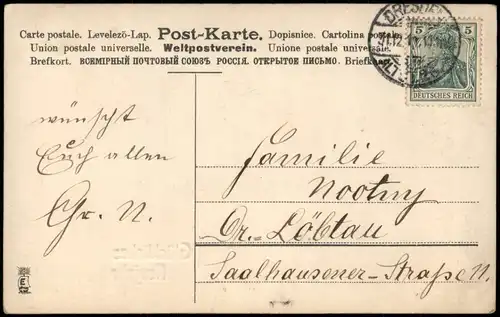 Carte postale. Levelező-Lap. Post-Karte. Dopisnice. Cartolina postale.
Union postale universelle. Weltpostverein. Unione postale universale.
Brefkort. ВСЕМІРНЫЙ ПОЧТОВЫЙ СОЮЗЪ РОССІЯ. ОТКРЫТОЕ ПИСЬМО. Briefkaart.
DRESDEN
31.12.
ALTST.
5 5
DEUTSCHES REICH
wünscht
Euch allen
Gr. N.
Familie
Nootny
Dr. Löbtau
Saalhausener-Straße 11.